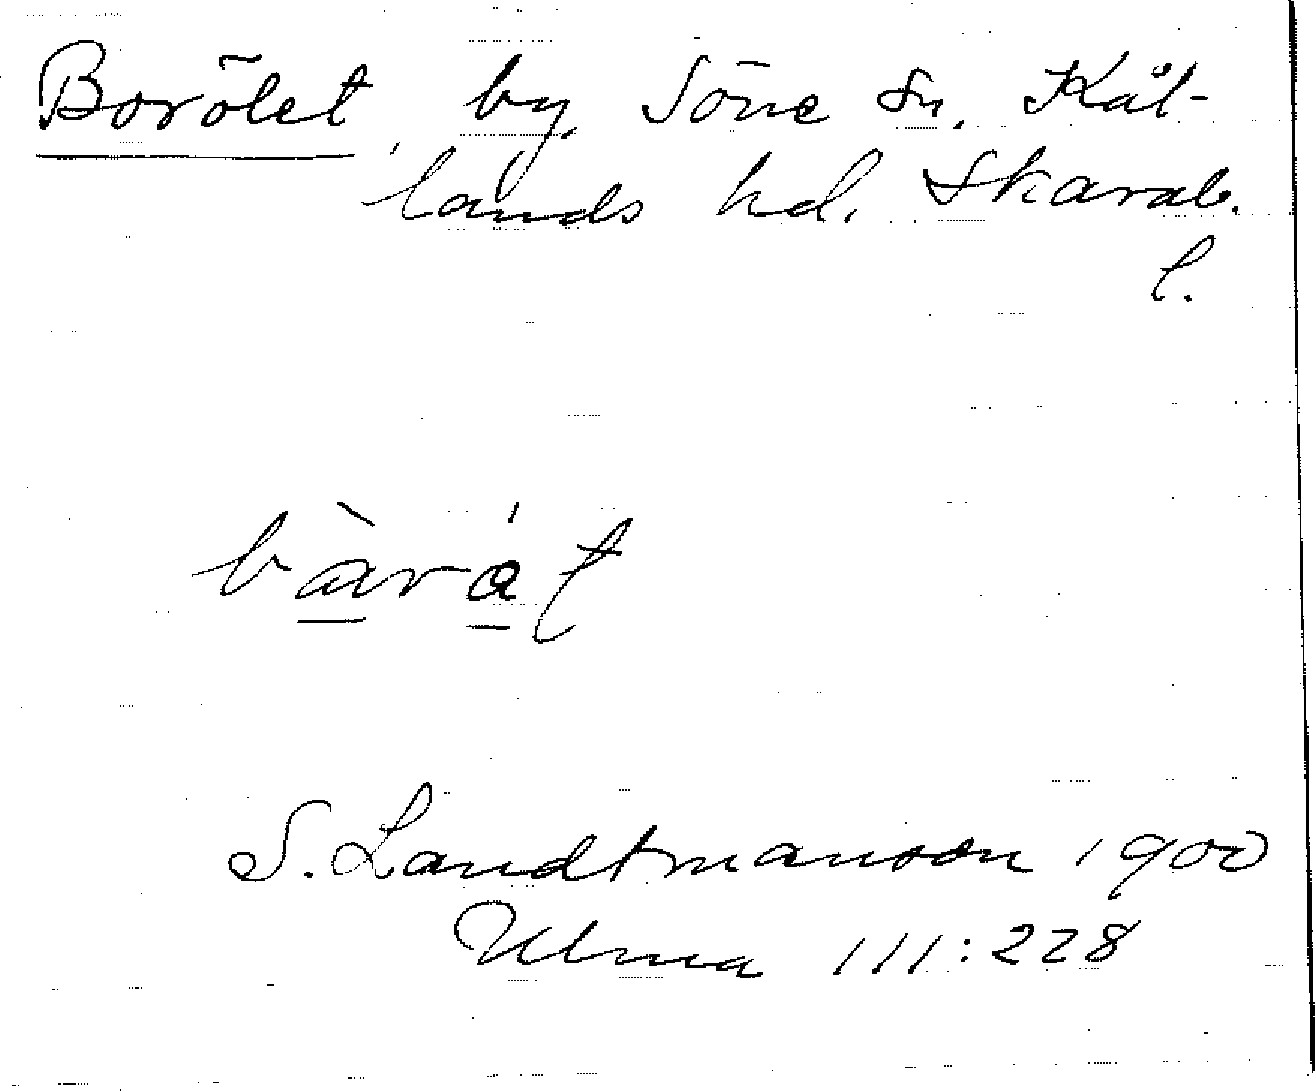 Borölet, by, Söne sn, Kål-
lands hd. Skarab.
l.
bàrát
S. Landtmanson 1900
Ulma 111:228